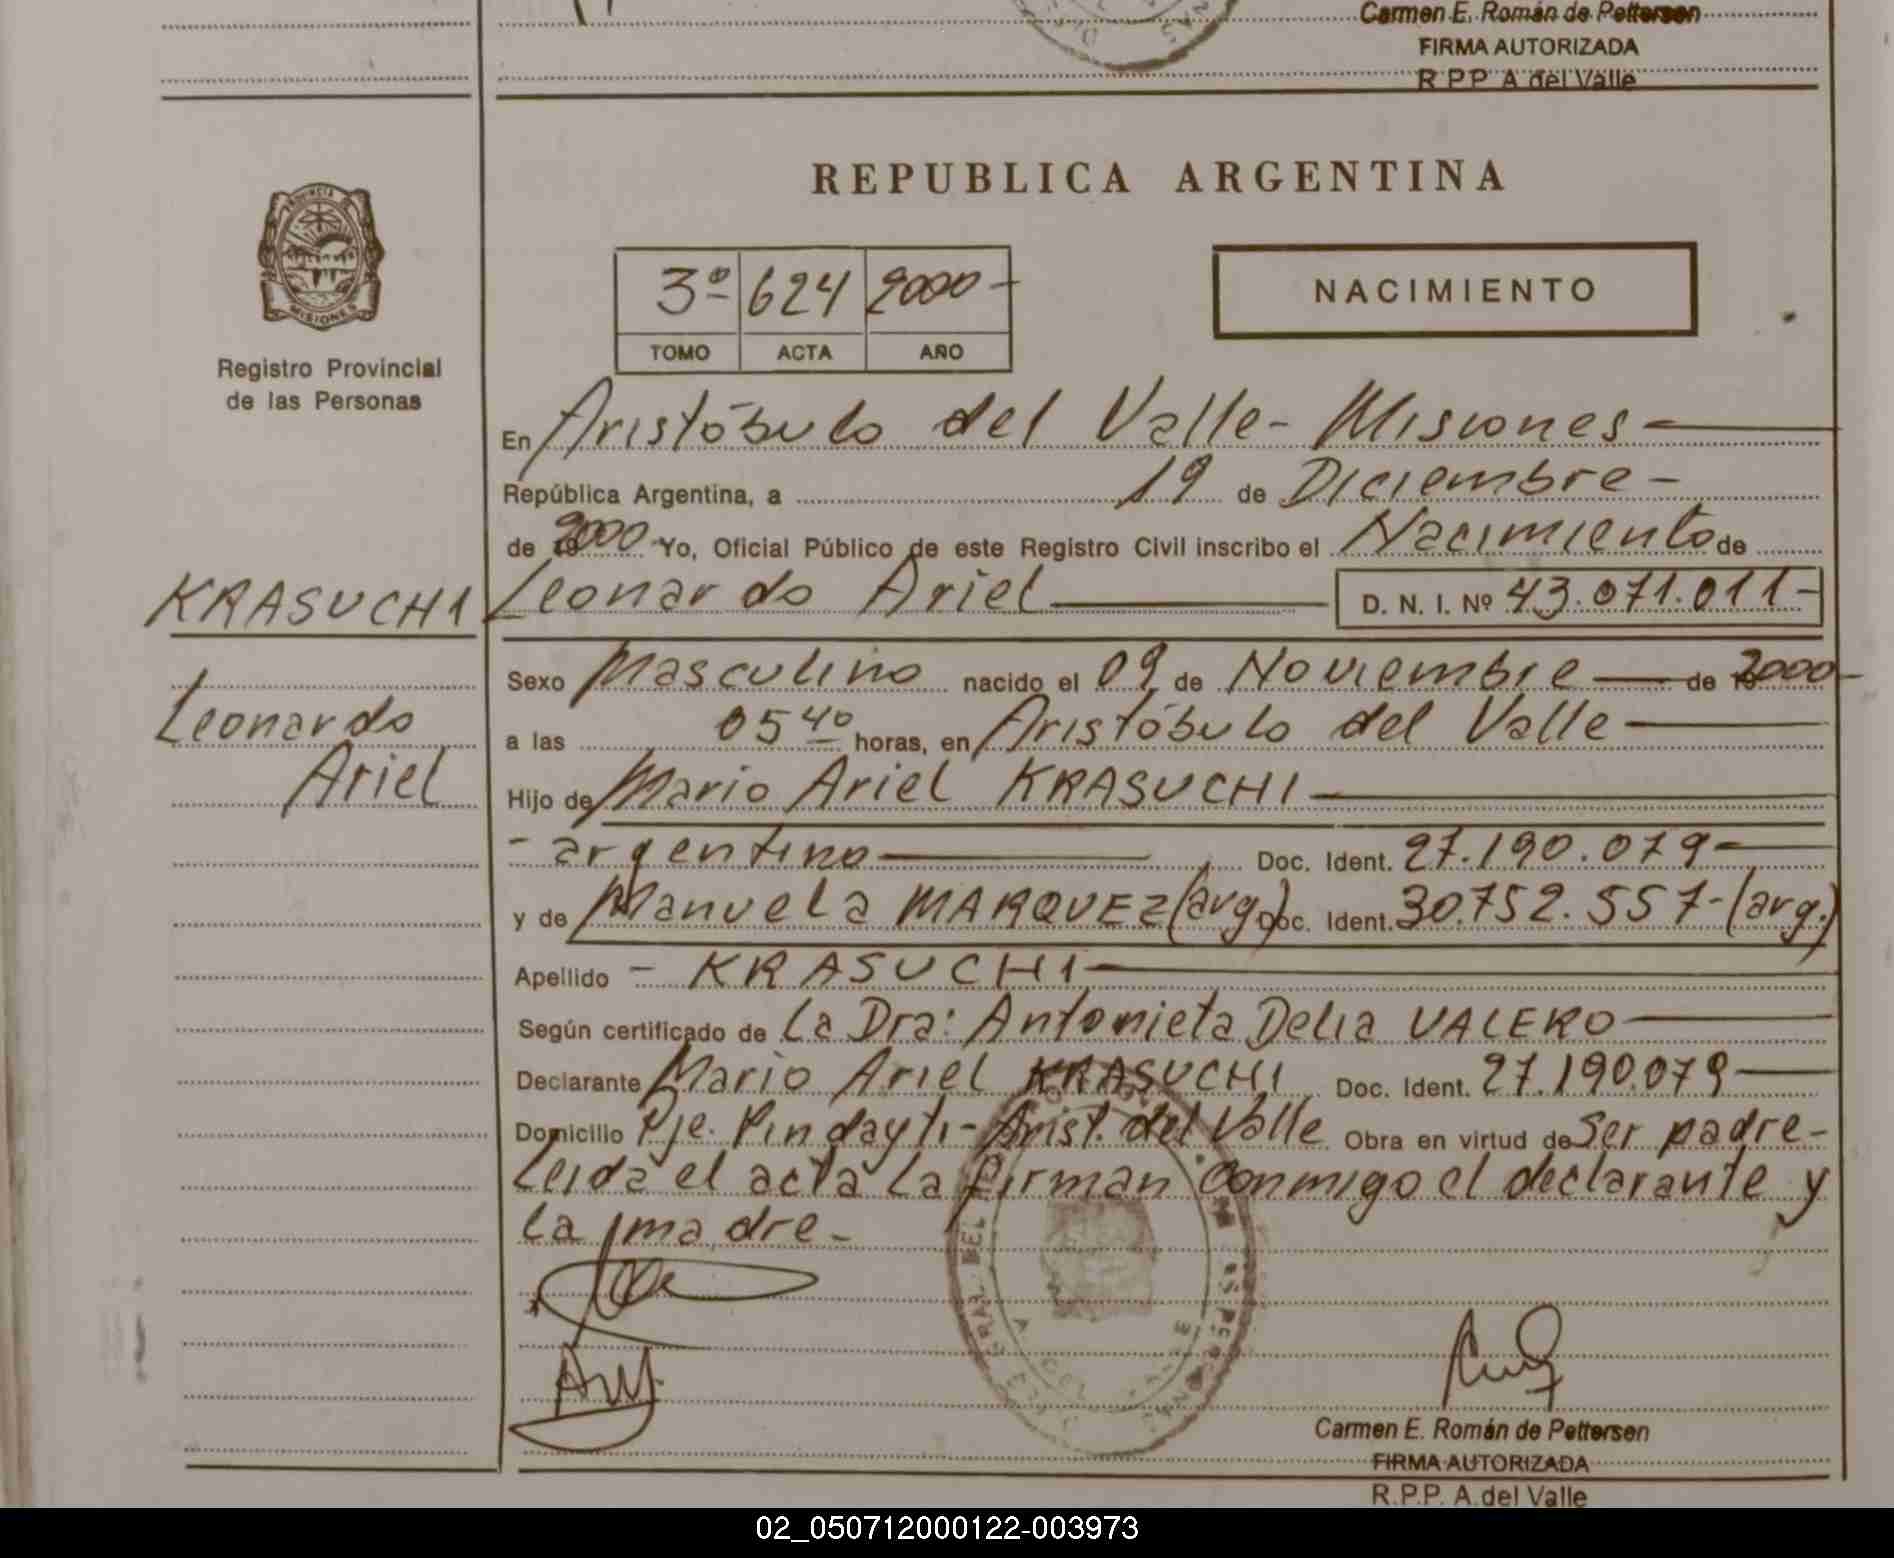 Carmen E. Román de Pettersen
FIRMA AUTORIZADA
R.P.P. A. del Valle
PROVINCIA
MISIONES
Registro Provincial
de las Personas
REPUBLICA ARGENTINA
3º 624 2000-
TOMO ACTA AÑO
NACIMIENTO
En Aristóbulo del Valle- Misiones-
República Argentina, a 19 de Diciembre-
de 2000 Yo, Oficial Público de este Registro Civil inscribo el Nacimiento de
KRASUCHI Leonardo Ariel D. N. I. Nº 43.071.011-
Sexo Masculino nacido el 09 de Noviembre de 2000-
Leonardo
a las 05 40 horas, en Aristóbulo del Valle
Ariel
Hijo de Mario Ariel KRASUCHI
- argentino Doc. Ident. 27.190.079-
y de Manuela MARQUEZ (arg.) Doc. Ident. 30.752.557-(arg.)
Apellido - KRASUCHI
Según certificado de La Dra: Antonieta Delia VALERO
Declarante Mario Ariel KRASUCHI Doc. Ident. 27.190.079
Domicilio Pje. Pindayti- Arist. del Valle Obra en virtud de Ser padre-
Leida el acta la firman conmigo el declarante y
la madre-
Carmen E. Román de Pettersen
FIRMA AUTORIZADA
R.P.P. A. del Valle
02_050712000122-003973